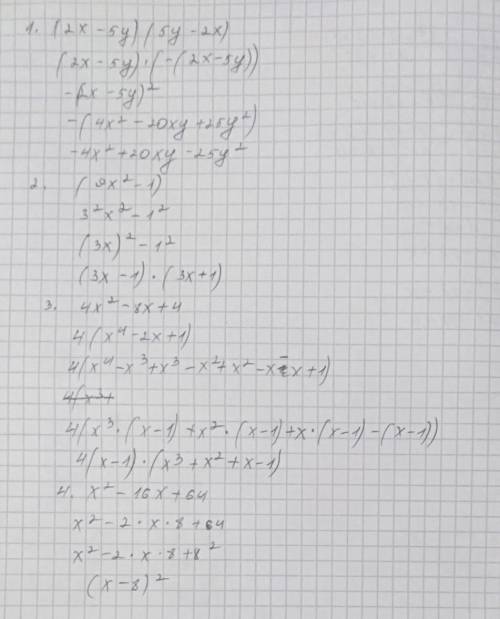 1. (2x - 5y) (5y - 2x)
(2x - 5y) · (-(2x - 5y))
-(2x - 5y)²
-(4x² - 20xy + 25y²)
-4x² + 20xy - 25y²
2. (9x² - 1)
3²x² - 1²
(3x)² - 1²
(3x - 1) · (3x + 1)
3. 4x² - 8x + 4
4(x⁴ - 2x + 1)
4(x⁴ - x³ + x³ - x² + x² - x - x + 1)
4(x³ +
4(x³ · (x - 1) + x² · (x - 1) + x · (x - 1) - (x - 1))
4(x - 1) · (x³ + x² + x - 1)
4. x² - 16x + 64
x² - 2 · x · 8 + 64
x² - 2 · x · 8 + 8²
(x - 8)²